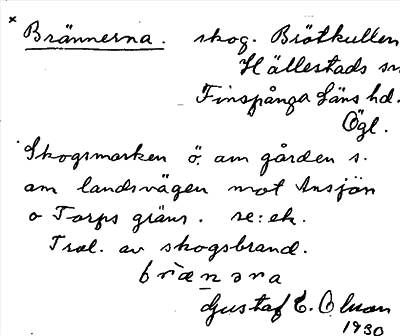 × Brännerna. skog. Brötkullen
Hällestads sn
Finspånga Läns hd.
Ögl.
Skogsmarken ö. om gården s.
om landsvägen mot Ansjön
o Torps gräns. se: ek.
Trol. av skogsbrand.
Gustaf E. O
1930